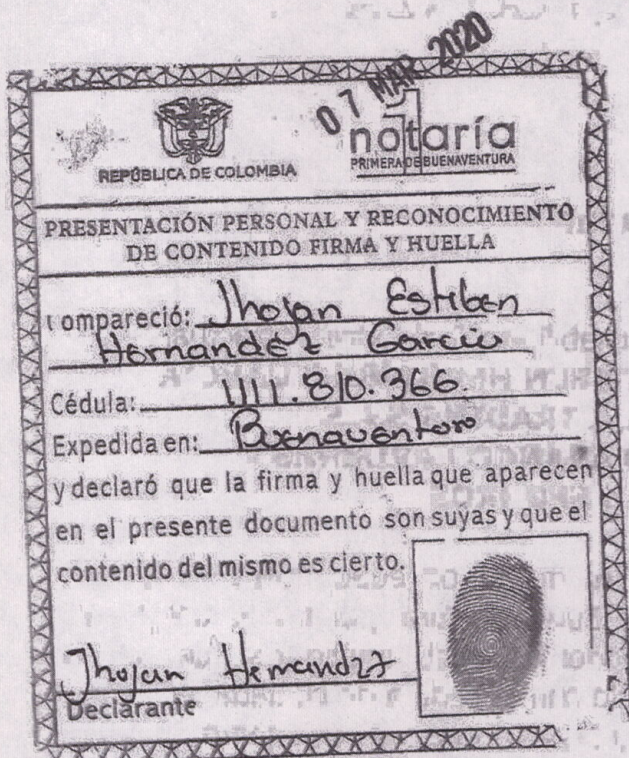 07 MAR 2020
REPÚBLICA DE COLOMBIA
1
notaría
PRIMERA DE BUENAVENTURA
PRESENTACIÓN PERSONAL Y RECONOCIMIENTO
DE CONTENIDO FIRMA Y HUELLA
ompareció: Jhojan Estiben
Hernandez Garcia
Cédula: 1111.810.366.
Expedida en: Buenaventura
y declaró que la firma y huella que aparecen
en el presente documento son suyas y que el
contenido del mismo es cierto.
Jhojan Hernandez
Declarante